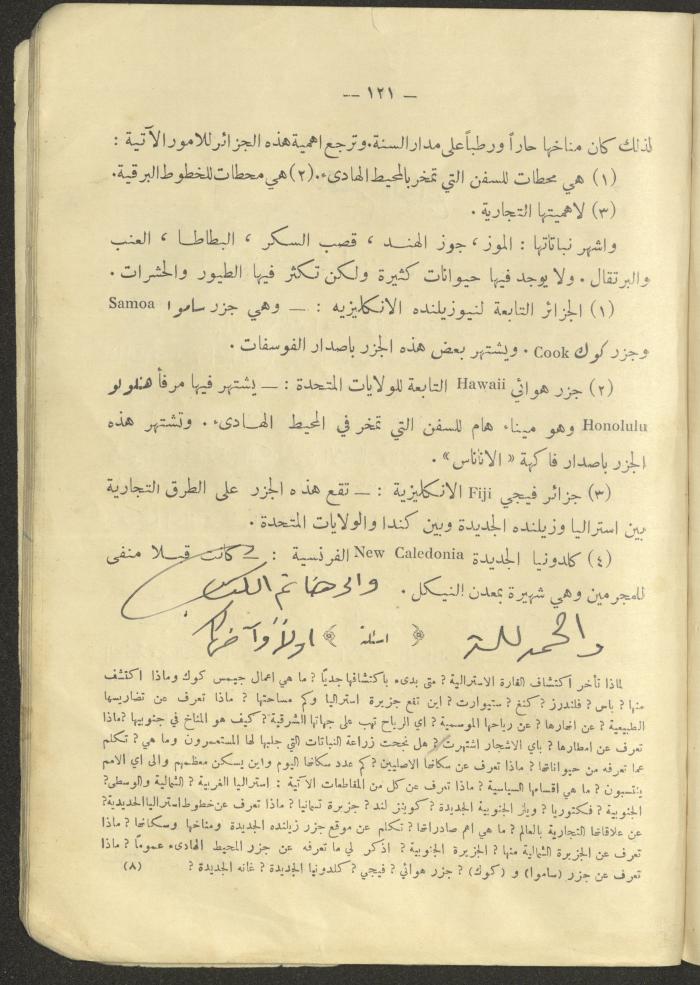 — ١٢١ —
لذلك كان مناخها حاراً ورطباً على مدار السنة. وترجع اهمية هذه الجزائر للامور الآتية :
(١) هي محطات للسفن التي تمخر بالمحيط الهادىء. (٢) هي محطات للخطوط البرقية.
(٣) لاهميتها التجارية .
واشهر نباتاتها : الموز ، جوز الهند ، قصب السكر ، البطاطا ، العنب
والبرتقال . ولا يوجد فيها حيوانات كثيرة ولكن تكثر فيها الطيور والحشرات .
(١) الجزائر التابعة لنيوزيلنده الانكليزيه : — وهي جزر ساموا Samoa
وجزر كوك Cook . ويشتهر بعض هذه الجزر باصدار الفوسفات .
(٢) جزر هوائي Hawaii التابعة للولايات المتحدة : — يشتهر فيها مرفأ هنلولو
Honolulu وهو ميناء هام للسفن التي تمخر في المحيط الهادىء . وتشتهر هذه
الجزر باصدار فاكهة « الاناناس » .
(٣) جزائر فيجي Fiji الانكليزية : — تقع هذه الجزر على الطرق التجارية
بين استراليا وزيلنده الجديدة وبين كندا والولايات المتحدة .
(٤) كلدونيا الجديدة New Caledonia الفرنسية : — كانت قبلا منفى
للمجرمين وهي شهيرة بمعدن النيكل . والى هنا تم الكتاب
والحمد لله ﴿ اسئلة ﴾ اولاً وآخراً
لماذا تأخر اكتشاف القارة الاسترالية ? متى بدىء باكتشافها جديّاً ? ما هي اعمال جيمس كوك وماذا اكتشف
منها ? باس ? فلندرز ? كنغ ? ستيوارت ? اين تقع جزيرة استراليا وكم مساحتها ? ماذا تعرف عن تضاريسها
الطبيعية ? عن انهارها ? عن رياحها الموسمية ? اي الرياح تهب على جهاتها الشرقية ? كيف هو المناخ في جنوبيها ? ماذا
تعرف عن امطارها ? باي الاشجار اشتهرت ? هل نجحت زراعة النباتات التي جلبها لها المستعمرون وما هي ? تكلم
عما تعرفه من حيواناتها ? ماذا تعرف عن سكانها الاصليين ? كم عدد سكانها اليوم واين يسكن معظمهم والى اي الامم
ينتسبون ? ما هي اقسامها السياسية ? ماذا تعرف عن كل من المقاطعات الآتية : استراليا الغربية ? الشمالية والوسطى ?
الجنوبية ? فكتوريا ? ويلز الجنوبية الجديدة ? كوينز لند ? جزيرة تسمانيا ? ماذا تعرف عن خطوط استراليا الحديدية ?
عن علاقاتها التجارية بالعالم ? ما هي اهم صادراتها ? تكلم عن موقع جزر زيلنده الجديدة ومناخها وسكانها ? ماذا
تعرف عن الجزيرة الشمالية منها ? الجزيرة الجنوبية ? اذكر لي ما تعرفه عن جزر المحيط الهادىء عموماً ? ماذا
تعرف عن جزر (ساموا) و (كوك) ? جزر هوائي ? فيجي ? كلدونيا الجديدة ? غانه الجديدة ? (٨)